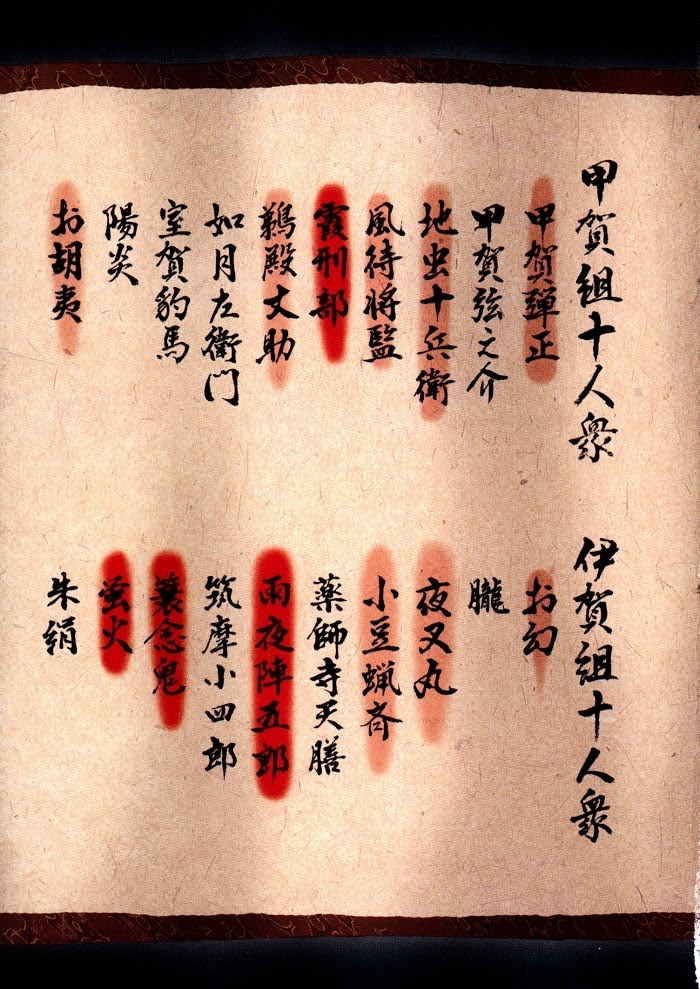 甲賀組十人衆
甲賀弾正
甲賀弦之介
地虫十兵衛
風待将監
霞刑部
鵜殿丈助
如月左衛門
室賀豹馬
陽炎
お胡夷
伊賀組十人衆
お幻
朧
夜叉丸
小豆蝋斎
薬師寺天膳
雨夜陣五郎
筑摩小四郎
蓑念鬼
蛍火
朱絹